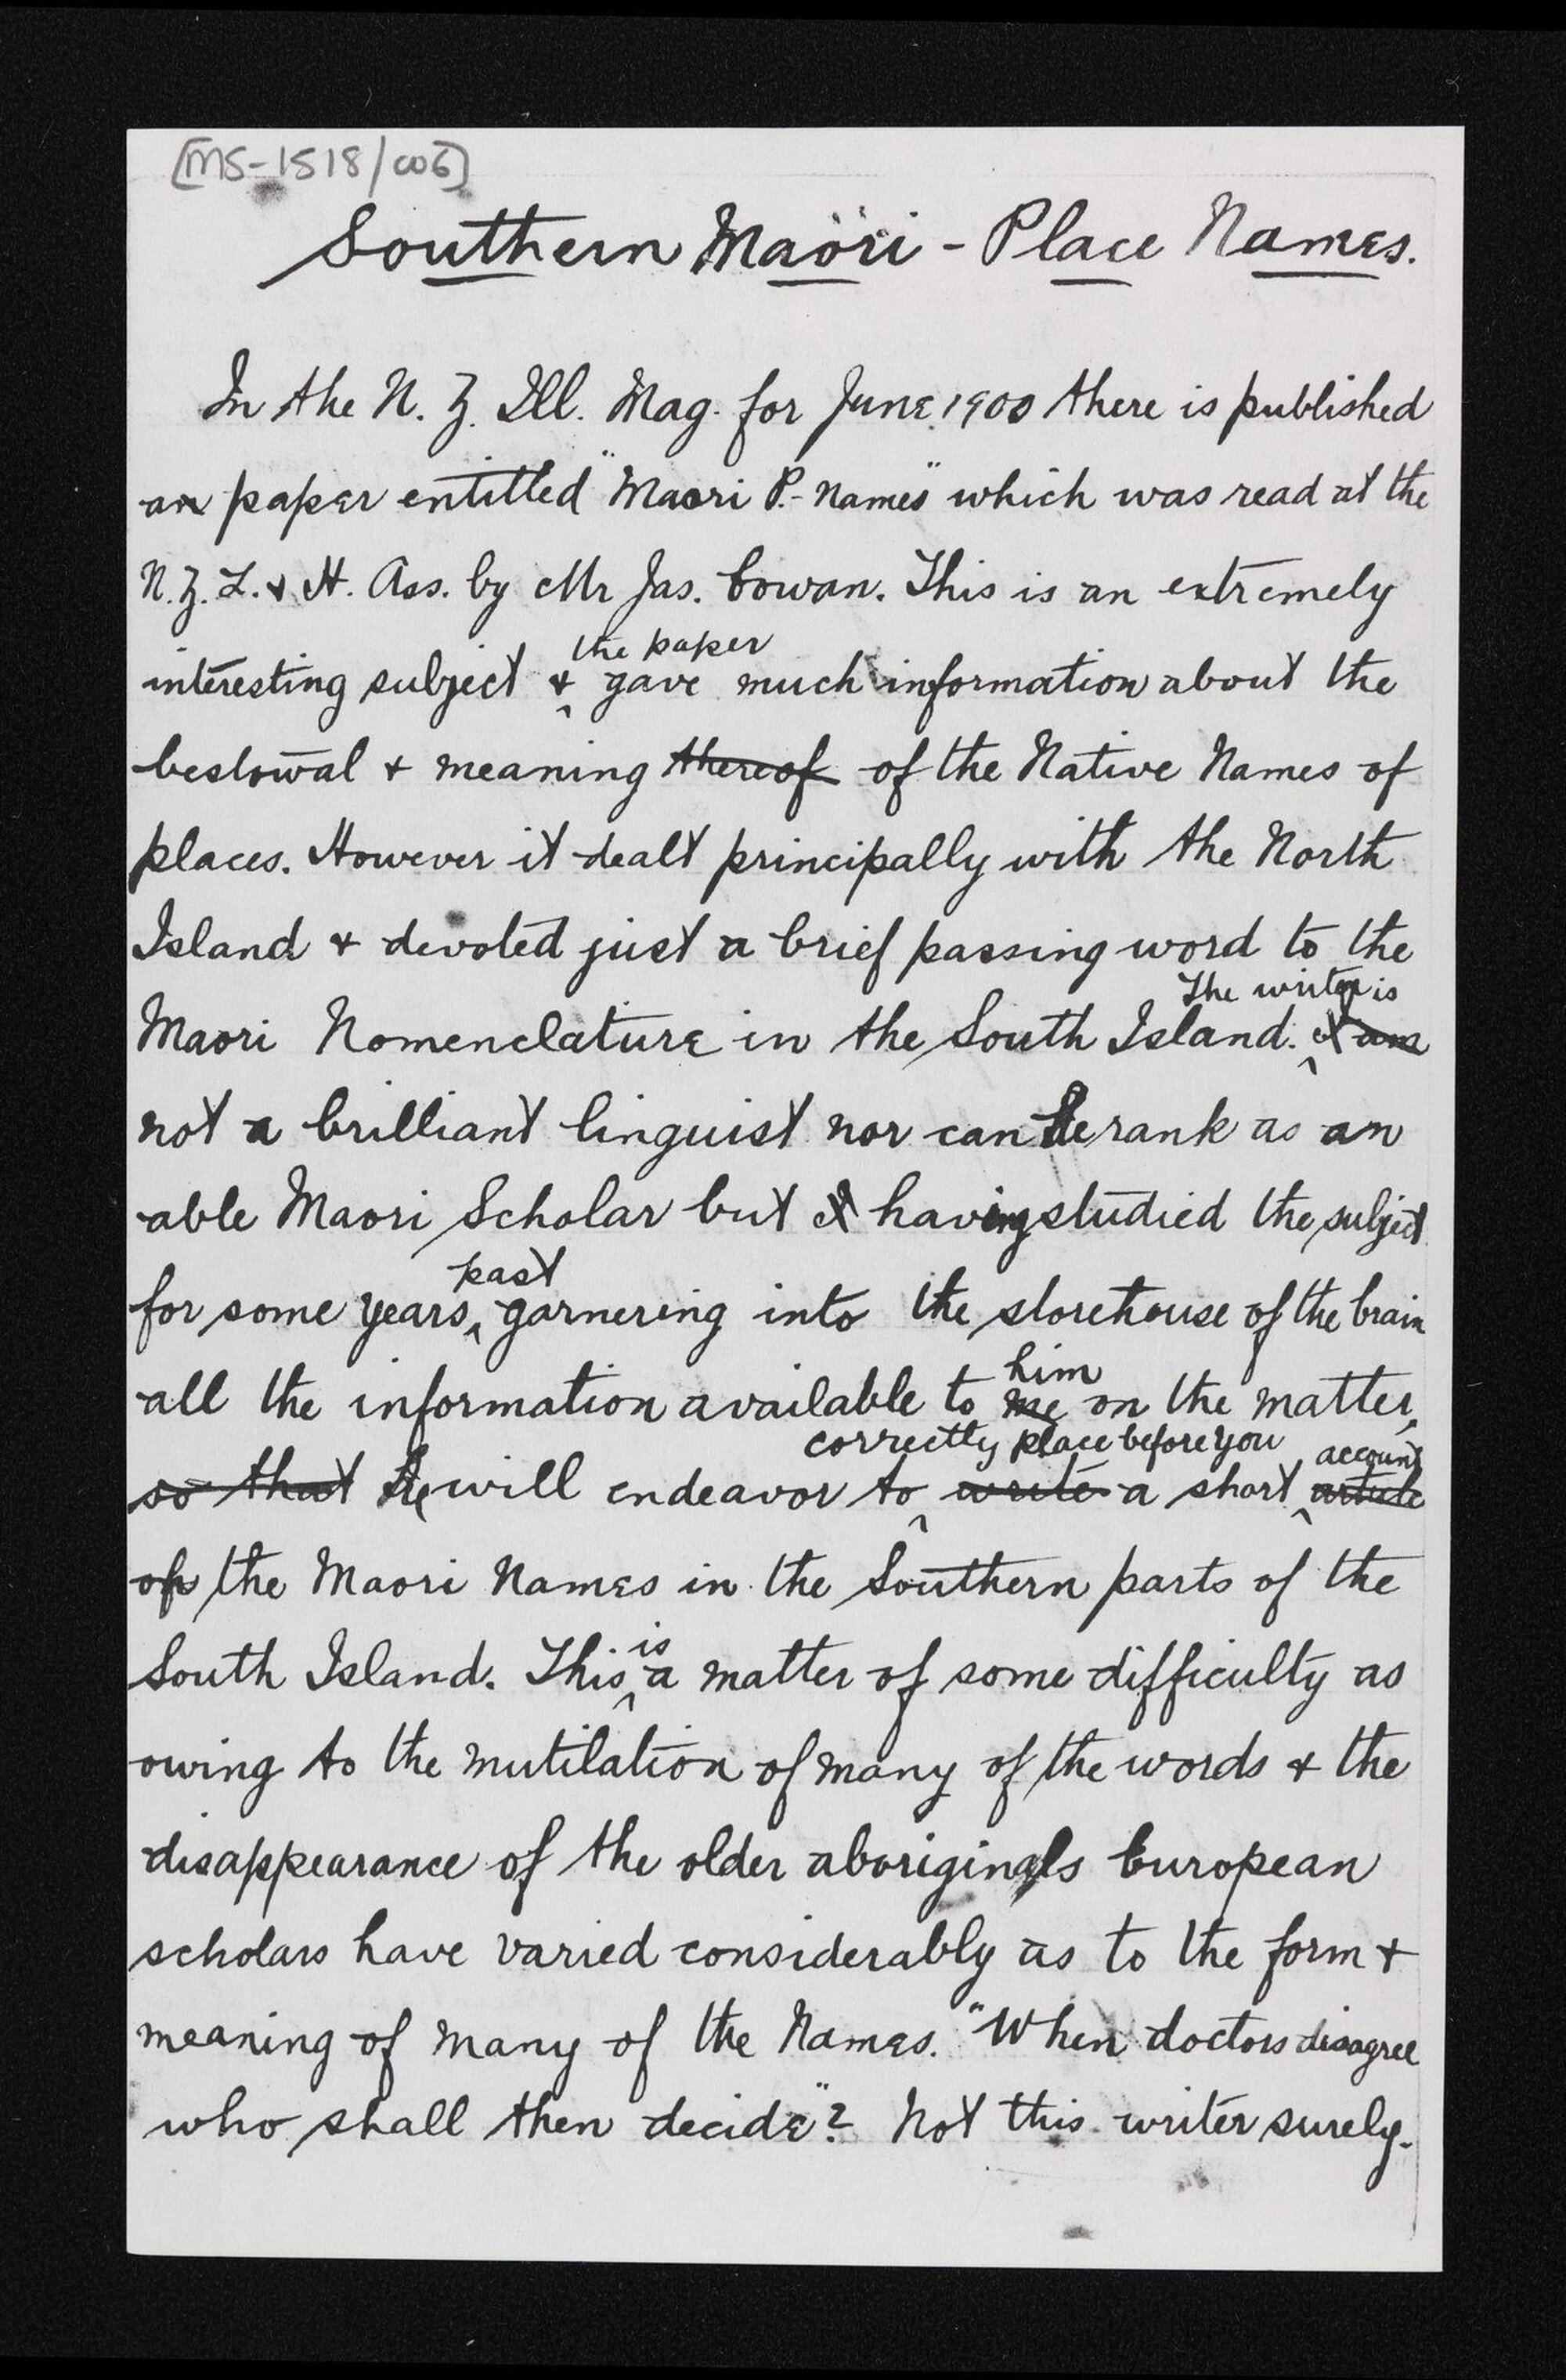 [MS-1518/006]
Southern Maori - Place Names.
In the N. Z. Ill. Mag. for June 1900 there is published
an paper entitled "Maori P.- Names" which was read at the
N. Z. L. & H. Ass. by Mr Jas. Cowan. This is an extremely
the paper
interesting subject & gave much information about the
bestowal & meaning thereof of the Native Names of
places. However it dealt principally with the North
Island & devoted just a brief passing word to the
The writer is
Maori Nomenclature in the South Island. I am
not a brilliant linguist nor can he rank as an
able Maori Scholar but I having studied the subject
past
for some years, garnering into the storehouse of the brain
him
all the information available to me on the matter,
correctly place before you account
so that he will endeavor to write a short article
of the Maori Names in the Southern parts of the
is
South Island. This a matter of some difficulty as
owing to the mutilation of many of the words & the
disappearance of the older aboriginals European
scholars have varied considerably as to the form &
meaning of many of the Names. "When doctors disagree
who shall then decide"? Not this writer surely.